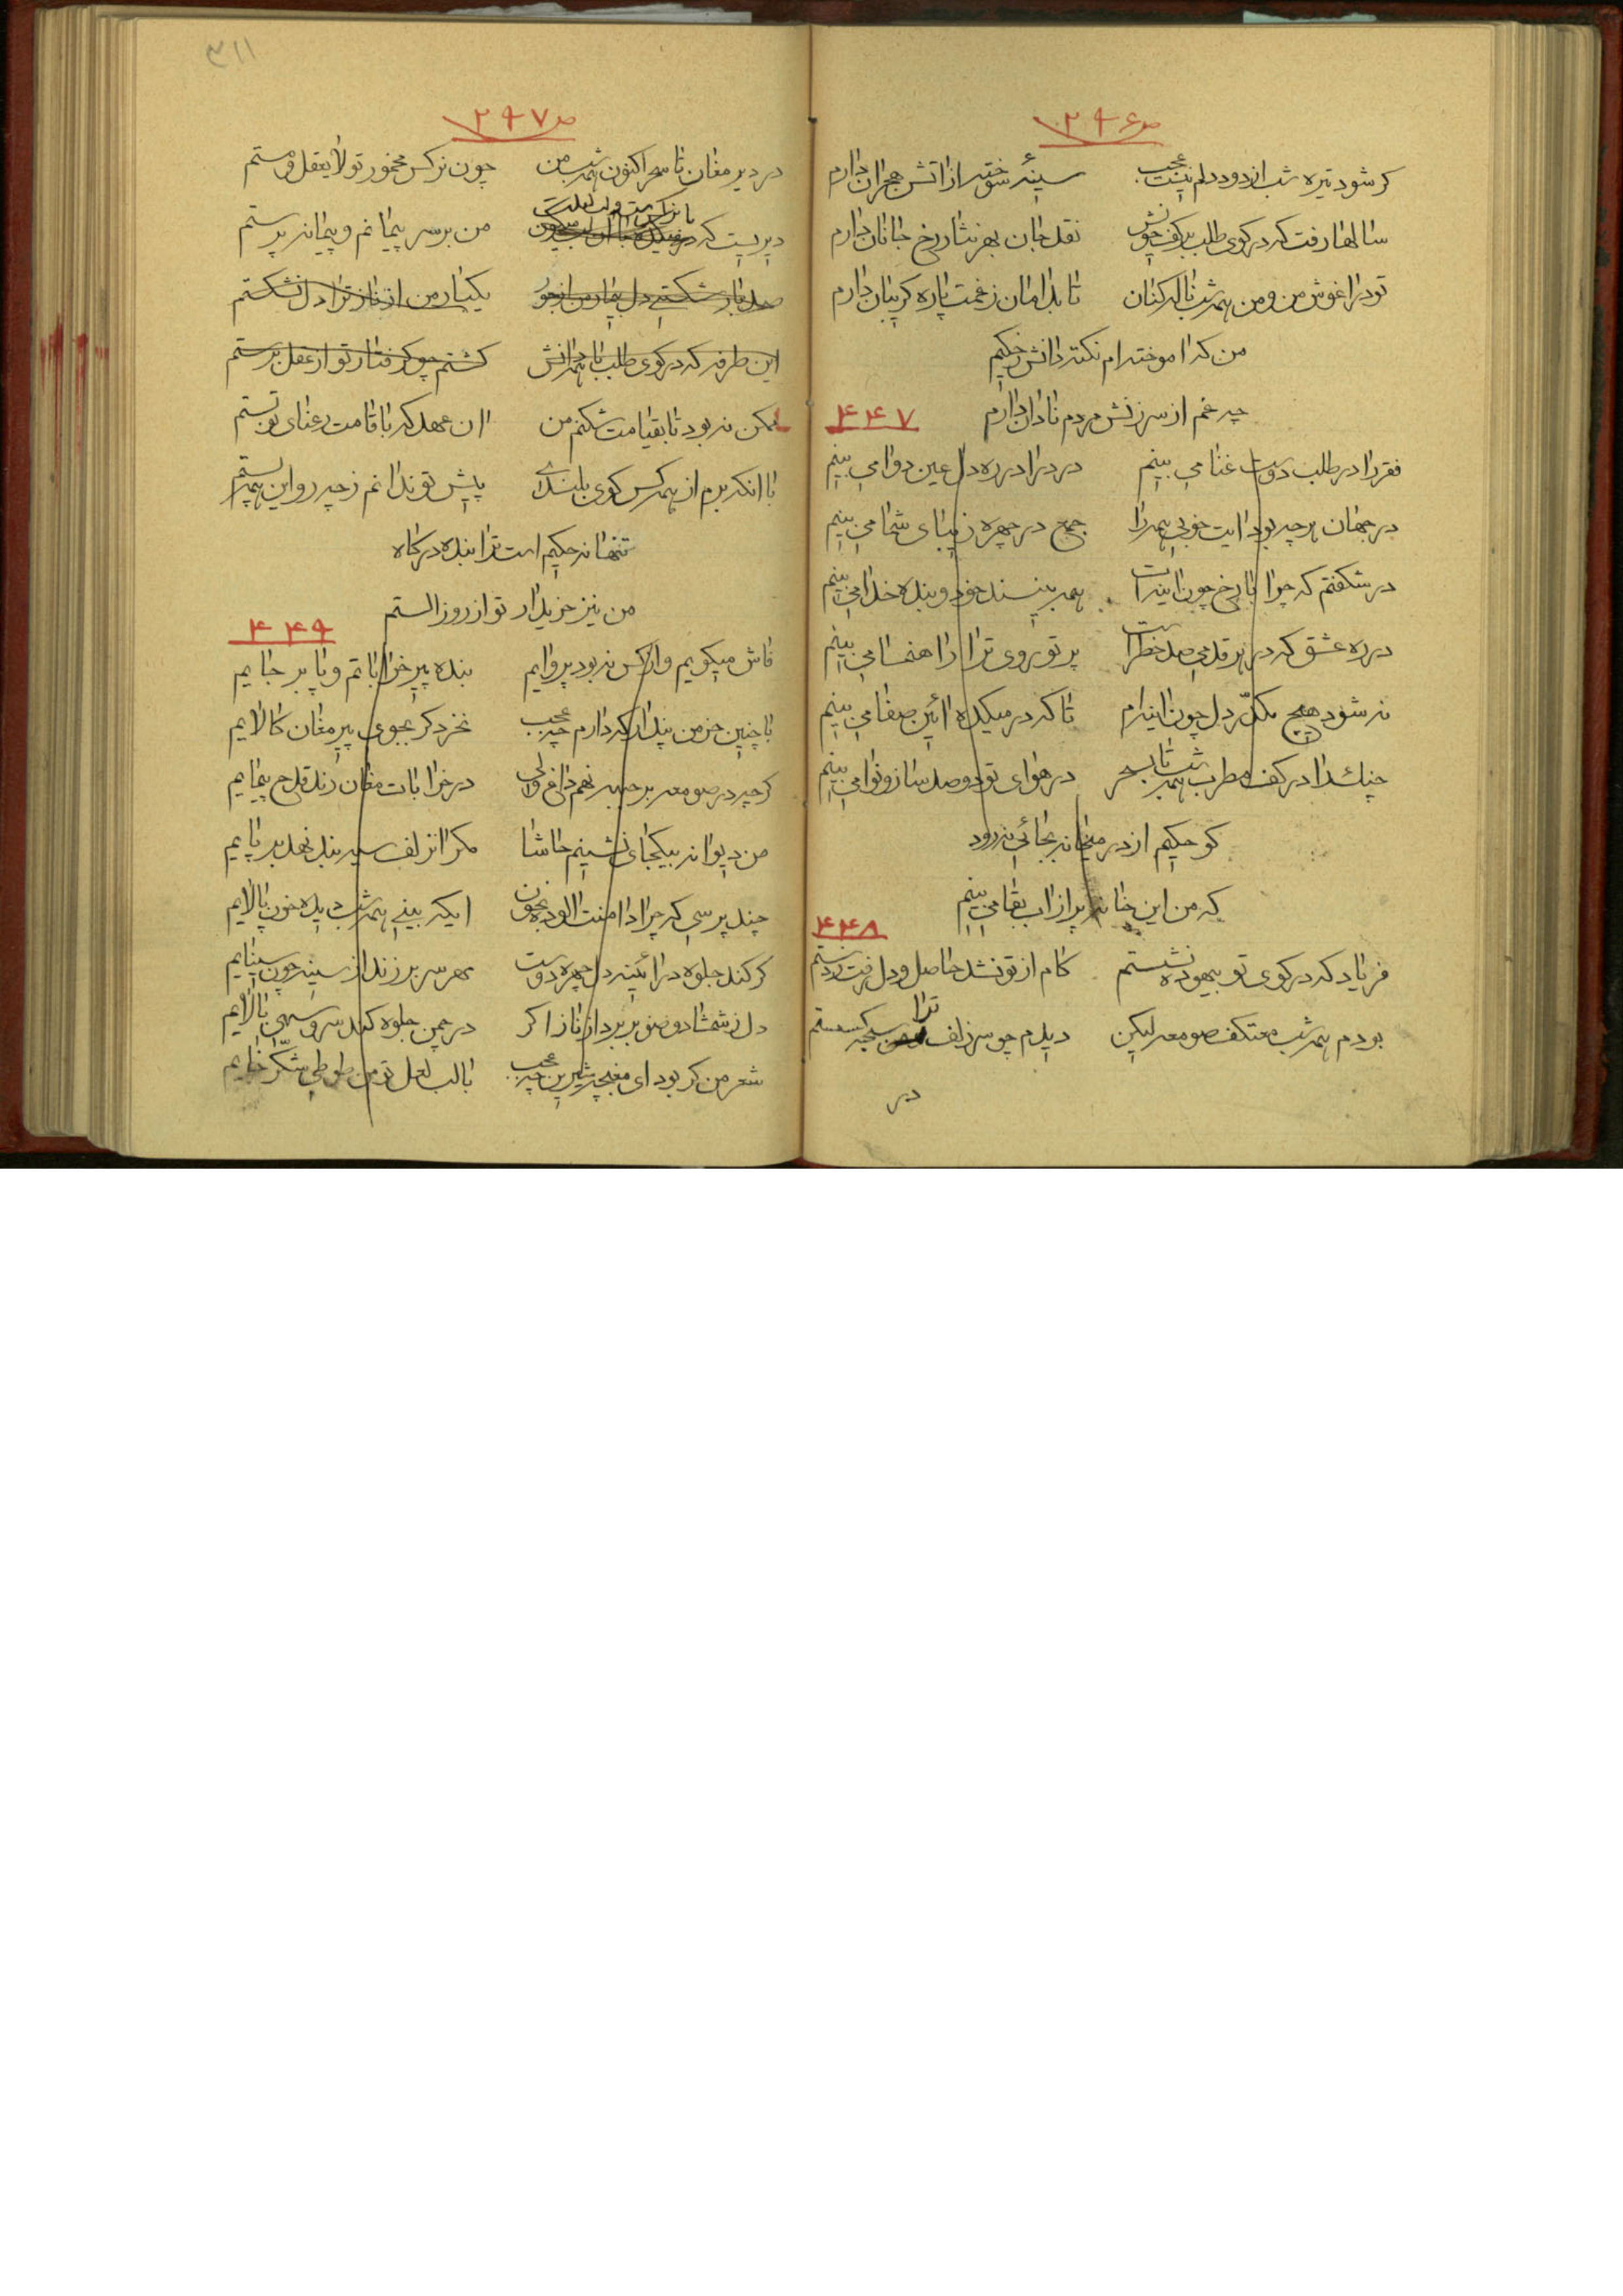 ص ۲۹۶
گر شود تیره شب از دود دلم نیست عجب سینهٔ سوخته از اتش هجران دارم
سالها رفت که در کوی طلب بر کف خویش نقد جان بهر نثار رخ جانان دارم
تو در اغوش من و من همه شب ناله کنان تا بدامان ز غمت پاره گریبان دارم
من که اموخته ام نکته دانش ز حکیم
چه غم از سرزنش مردم نادان دارم
۴۴۷
فقر را در طلب دوست غنا می بینم درد را در ره دل عین دوا می بینم
در جهان هر چه بود ایت خوبی همه را جمع در چهره زیبای شما می بینم
در شگفتم که چرا با رخ چون اینه ات همه بینند خود و بنده خدا می بینم
در ره عشق که در هر قدمی صد خطر است پرتو روی ترا راهنما می بینم
نه شود هیچ مکدّر دل چون اینه ام تا که در میکده ائین صفا می بینم
چنگ را در کف مطرب همه شب تا بسحر در هوای تو دو صد ساز و نوا می بینم
گو حکیم از در میخانه بجائی نه رود
که من این خانه پر از اب بقا می بینم
۴۴۸
فریاد که در کوی تو بیهوده نشستم کام از تو نشد حاصل و دل رفت ز دستم
بودم همه شب معتکف صومعه لیکن دیدم چو سر زلف ترا سبحه گسستم
در
۳۱۱
ص ۲۹۷
در دیر مغان تا سحر اکنون همه شب من چون نرگس مخمور تو لا یعقل و مستم
دیریست که با یاد من بر سر پیمانم و پیمانه پرستم
صد بار شکستی دل بیمار من از جور یکبار من از ناز ترا دل نشکستم
این طرفه که در کوی طلب با همه دانش گشتم چو گرفتار تو از عقل برستم
ممکن نه بود تا بقیامت شکنم من ان عهد که با قامت رعنای تو بستم
با انکه برم از همه کس گوی بلندی پیش تو ندانم ز چه رو این همه پستم
تنها نه حکیم است ترا بنده درگاه
من نیز خریدار تو از روز الستم
۴۴۹
فاش میگویم و از کس نه بود پروایم بنده پیر خراباتم و پا بر جایم
با چنین خرمن پندار که دارم چه عجب نخرد گر بجوی پیر مغان کالایم
گرچه در صومعه بر جبهه نهم داغ ولی در خرابات مغان رند قدح پیمایم
من دیوانه بیکجای نشینم حاشا مگر از زلف سیه بند نهد بر پایم
چند پرسی که چرا دامنت الوده بخون ایکه بینی همه شب دیده خون پالایم
گر کند جلوه در ائینه دل چهره دوست مهر سر برزند از سینه چون سینایم
دل ز شمشاد و صنوبر ببرد از ناز اگر در چمن جلوه کند سرو سهی بالایم
شعر من گر بود ای مغبچه شیرین چه عجب با لب لعل تو من طوطی شکّر خایم